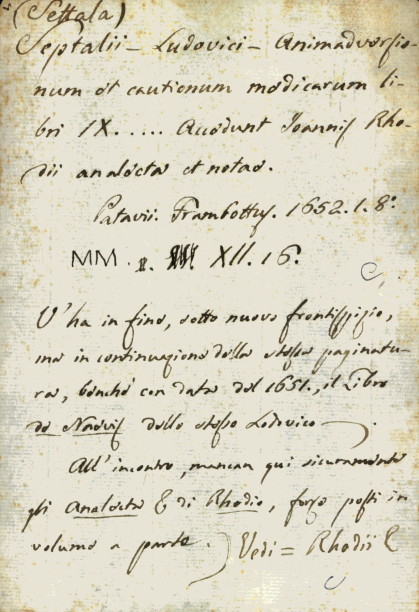 (Settala)
Septalii - Ludovici - Animadversio-
num et cautionum medicarum li-
bri IX..... Accedunt Joannis Rho-
dii analecta et notae.
Patavii. Frambottus. 1652. 1. 8º.
MM. XII. 16.
V'ha in fine, sotto nuovo frontispizio,
ma in continuazione della stessa paginatu-
ra, benchè con data del 1651., il Libro
de Naevis dello stesso Lodovico -
All'incontro, mancan qui sicuramente
gli Analecta & di Rhodio, forse posti in
volume a parte.) Vedi = Rhodii &